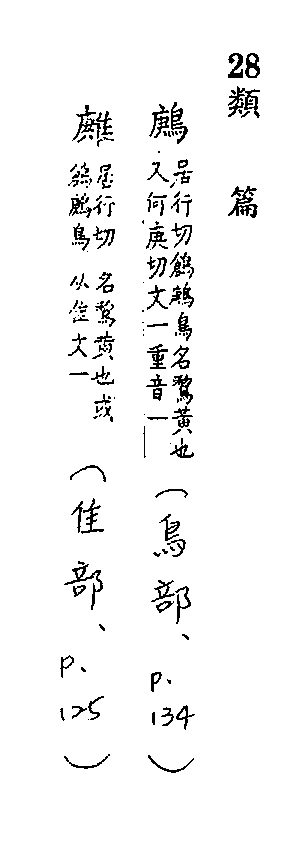 28類篇
鶊
居行切鶬鶊鳥名鵹黃也
又何庚切文一重音一
(鳥部、p.134)
居行切
鶬鶊鳥
名鵹黃也或
从隹文一
(隹部、p.125)